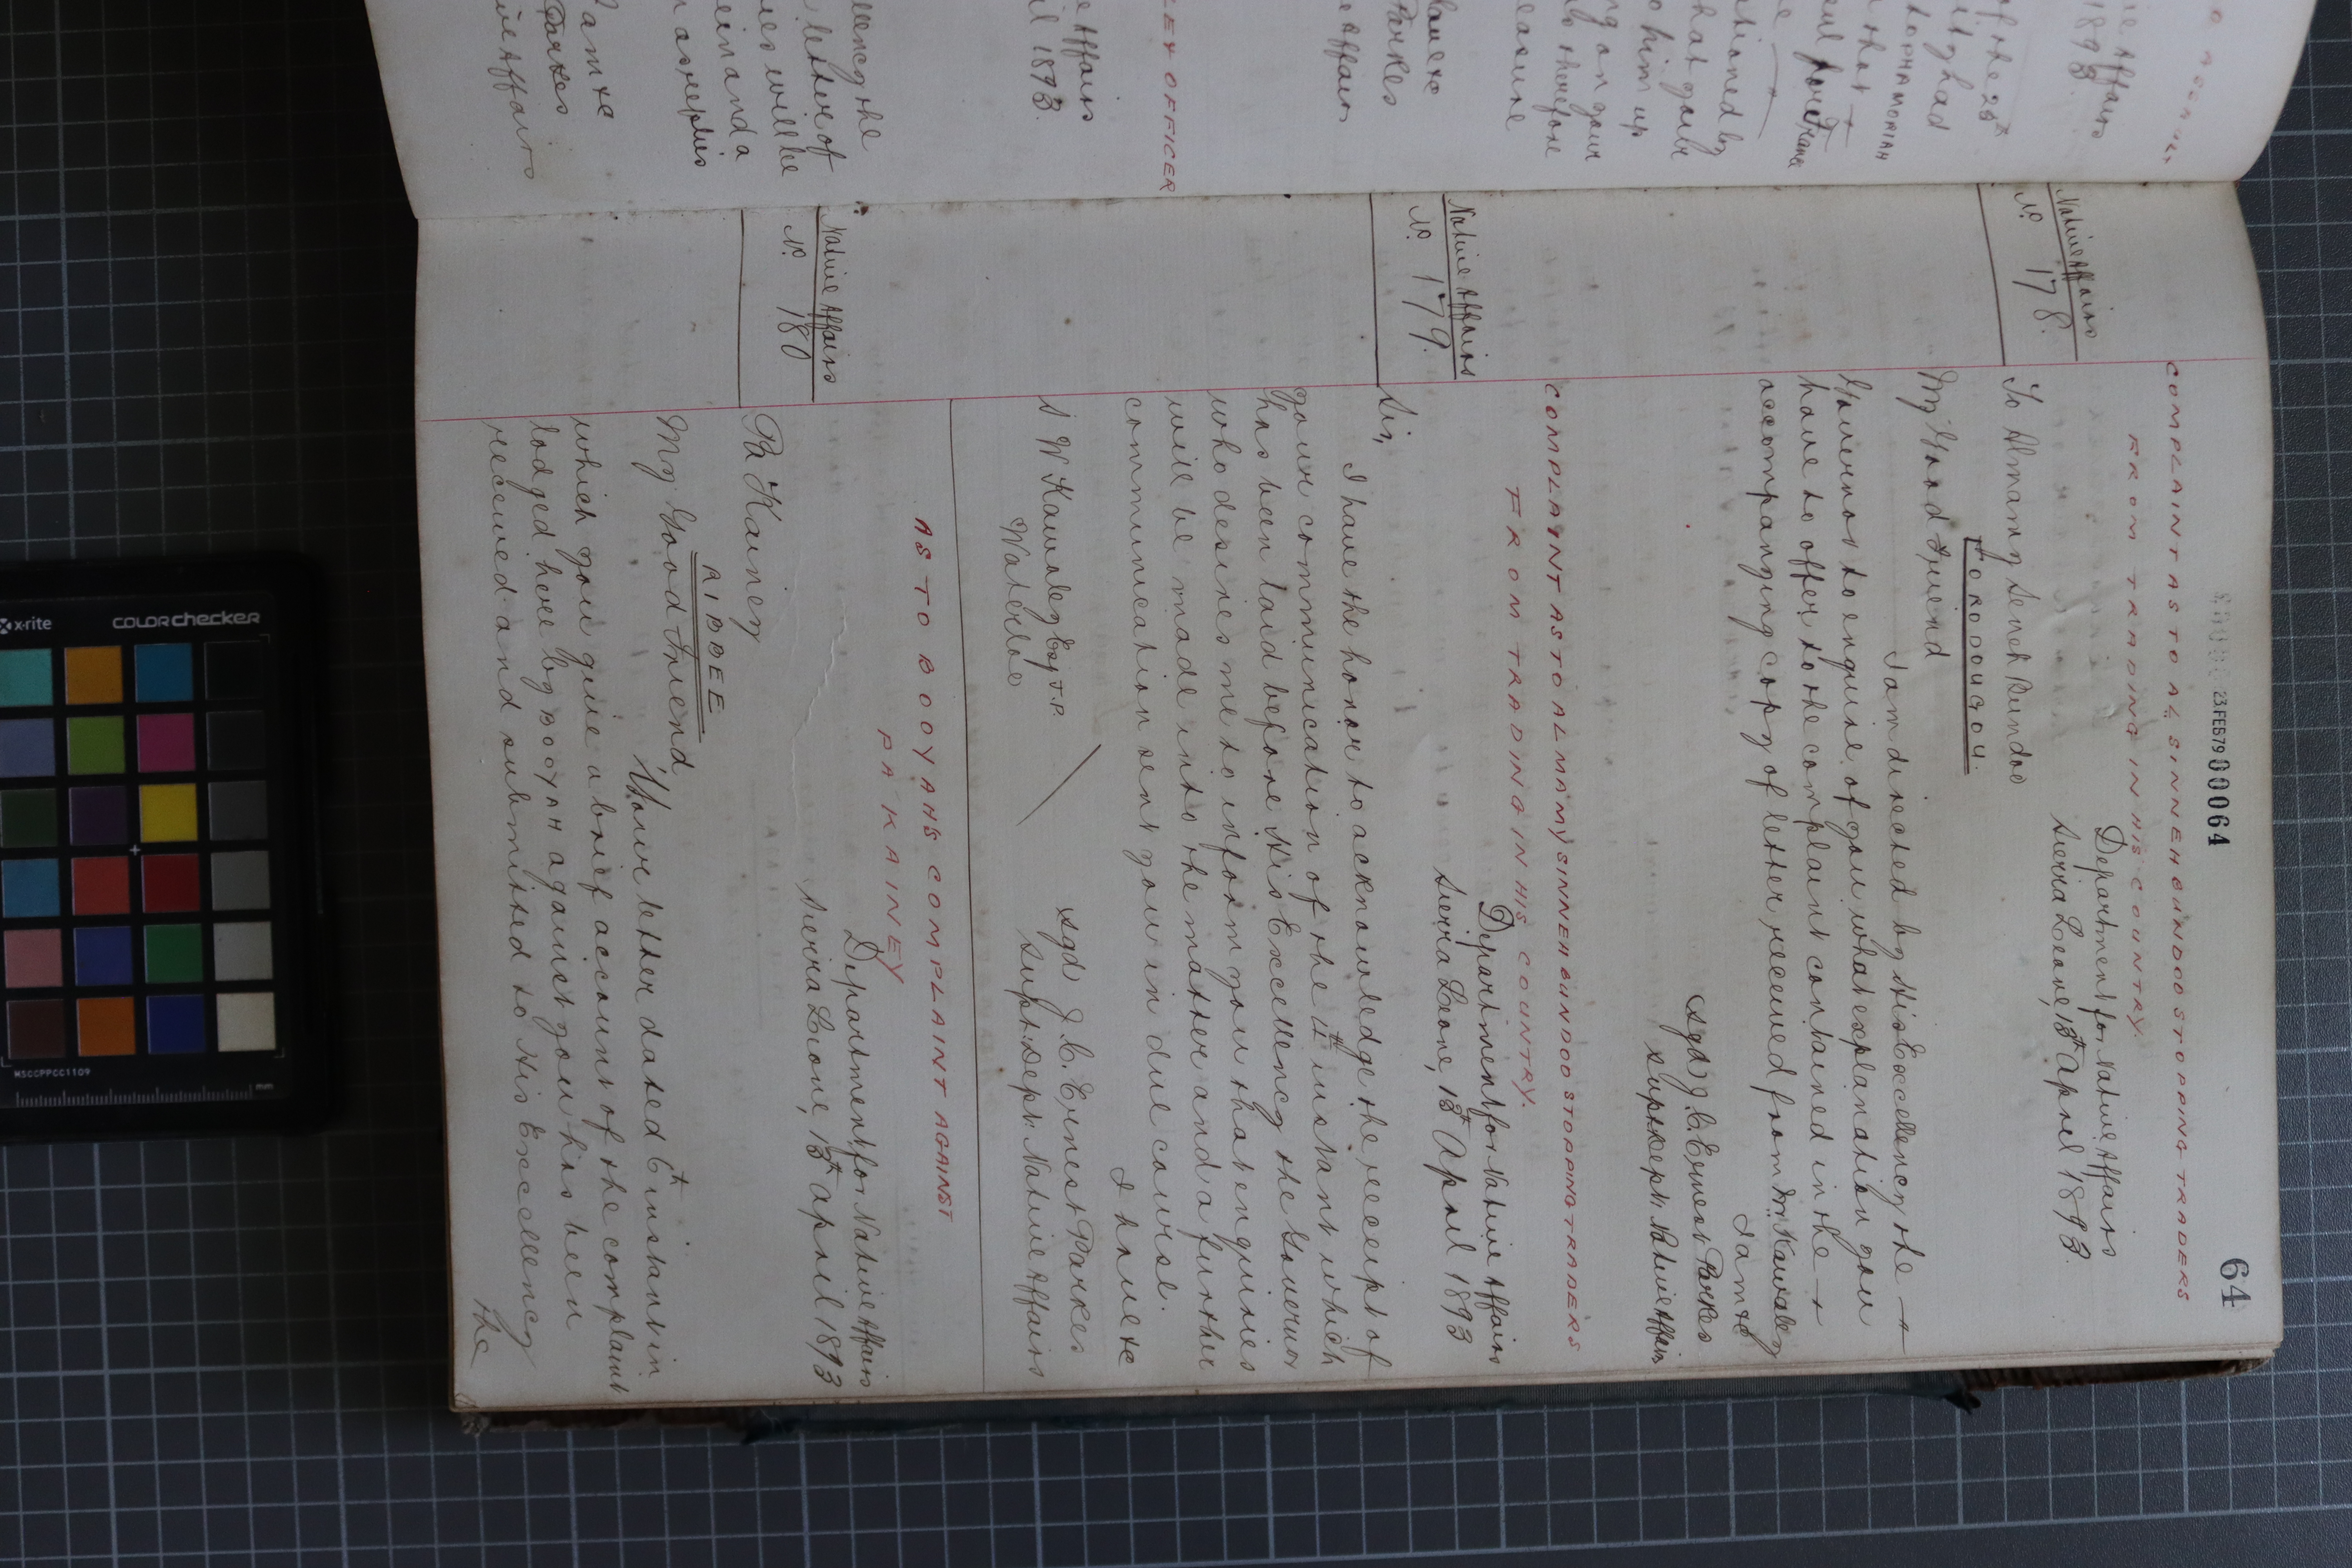 64
23 FEB 79 00064
COMPLAINT AS TO AL SINNEH BUNDOO STOPPING TRADERS
FROM TRADING IN HIS COUNTRY.
Native Affairs
No. 178.
Department for Native Affairs
Sierra Leone, 13th April 1893.
To Almamy Seneh Bundoo
FORODOUGOU.
My Good Friend
I am directed by His Excellency the
Governor to enquire of you what explanation you
have to offer to the complaint contained in the
accompanying copy of letter received from Mr Kawaley
I am &c
sgd J. C. Ernest Parkes
Supt: Dept: Native Affairs
COMPLAINT AS TO ALMAMY SINNEH BUNDOO STOPPING TRADERS
FROM TRADING IN HIS COUNTRY.
Native Affairs
No. 179.
Department for Native Affairs
Sierra Leone, 13th April 1893
Sir,
I have the honor to acknowledge the receipt of
your communication of the 11th instant which
has been laid before His Excellency the Governor
who desires me to inform you that enquiries
will be made into the matter and a further
communication sent you in due course.
I have &c
sgd J. C. Ernest Parkes
Supt: Dept: Native Affairs
S W Kawaley Esq J.P.
Waterloo
AS TO BOOYAH'S COMPLAINT AGAINST
PA KAINEY
Native Affairs
No. 180
Department for Native Affairs
Sierra Leone, 13th April 1893
Pa Kainey
AIBEE
My Good Friend
Your letter dated 6th instant in
which you give a brief account of the complaint
lodged here by BOOYAH against you has been
received and submitted to His Excellency
the
x-rite
colorchecker
MSCCPPCC1109
mm